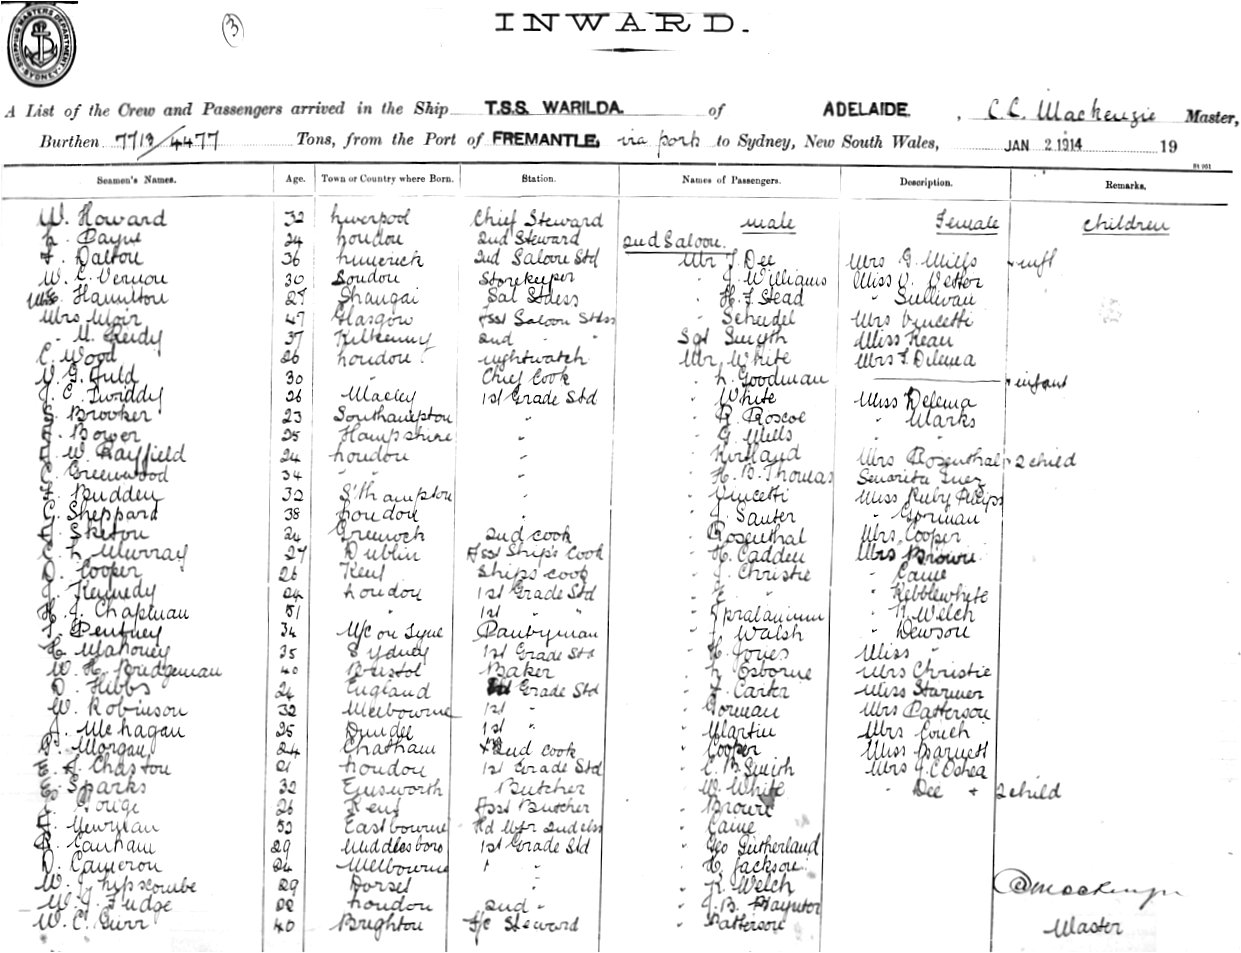 SHIPPING MASTERS DEPARTMENT SYDNEY
3
INWARD.
A List of the Crew and Passengers arrived in the Ship T.S.S. WARILDA. of ADELAIDE. , C.C. Mackenzie Master,
Burthen 7713/4477 Tons, from the Port of FREMANTLE, via ports to Sydney, New South Wales, JAN 2 1914 19
Seamen's Names. Age. Town or Country where Born. Station. Names of Passengers. Description. Remarks.
W. Howard 32 Liverpool Chief Steward male Female Children
L. Payne 24 London 2nd Steward 2nd Saloon.
F. Dalton 36 Limerick 2nd Saloon Std Mr T. Dee Mrs G. Mills + infl
W. C. Vernon 30 London Storekeeper " J. Williams Miss V. Vetter
Mrs Hamilton 27 Shangai Sal Stdess " H. F. Stead " Sullivan
Mrs Moir 47 Glasgow Asst Saloon Stdss " Scheidel Mrs Vincetti
" M. Reidy 37 Kilkenny 2nd " " Sgt Smyth Miss Kean
C. Wood 26 London nightwatch Mr White Mrs F. Delema
V. G. Auld 30 " Chief Cook " L. Goodman + infant
J. C. Twiddy 26 Macley 1st Grade Std " White Miss Delema
S. Brooker 23 Southampton " " R. Roscoe " Marks
A. Bower 25 Hampshire " " G. Mills " "
A. W. Rayfield 24 London " " Kirtland Mrs Rosenthal + 2 child
C. Greenwood 34 " " " H. B. Thomas Senorita Inez
F. Budden 32 S'thampton " " Vincetti Miss Ruby Phelps
G. Sheppard 38 London " " J. Sauter " Gorman
A. Sketon 24 Greenoch 2nd cook " Rosenthal Mrs Cooper
C. L. Murray 27 Dublin Asst Ships Cook " H. Cadden Mrs Brown
D. Cooper 26 Kent Ships cook " J. Christie " Caine
J. Kennedy 24 London 1st Grade Std " E. " " Kebblewhite
H. J. Chapman 51 " 1st " " " " N. Welch
Pentney 34 N/c on Tyne Pantryman " J. Walsh " Dewson
H. Mahoney 25 Sydney 1st Grade Std " H. Jones Miss "
W. H. Bridgeman 40 Bristol Baker " L. Osborne Mrs Christie
D. Hibbs 24 England Grade Std " F. Carter Miss Starmer
W. Robinson 32 Melbourne 1st " " Gorman Mrs Patterson
J. Mehagan 25 Dundee 1st " " Martin Mrs Couch
P. Morgan 24 Chatham 2nd cook " Cooper Miss Barnett
E. A. Chaston 21 London 1st Grade Std " C. B. Smith Mrs J. C. Oshea
E. Sparks 32 Emsworth Butcher " W. White " Dee + 2 child
26 Kent Asst Butcher " Brown
52 Eastbourne Hd Wtr 2nd clss " Caine
R. Canham 29 Middlesboro 1st Grade Std " Geo Sutherland
D. Cameron 24 Melbourne " " " H. Jackson
W. J. Lipscombe 29 Dorset " " K. Welch C.C. Mackenzie
W. J. Fudge 22 London 2nd " " J. B. Paynter
W. C. Gurr 40 Brighton F/c Steward " Patterson Master